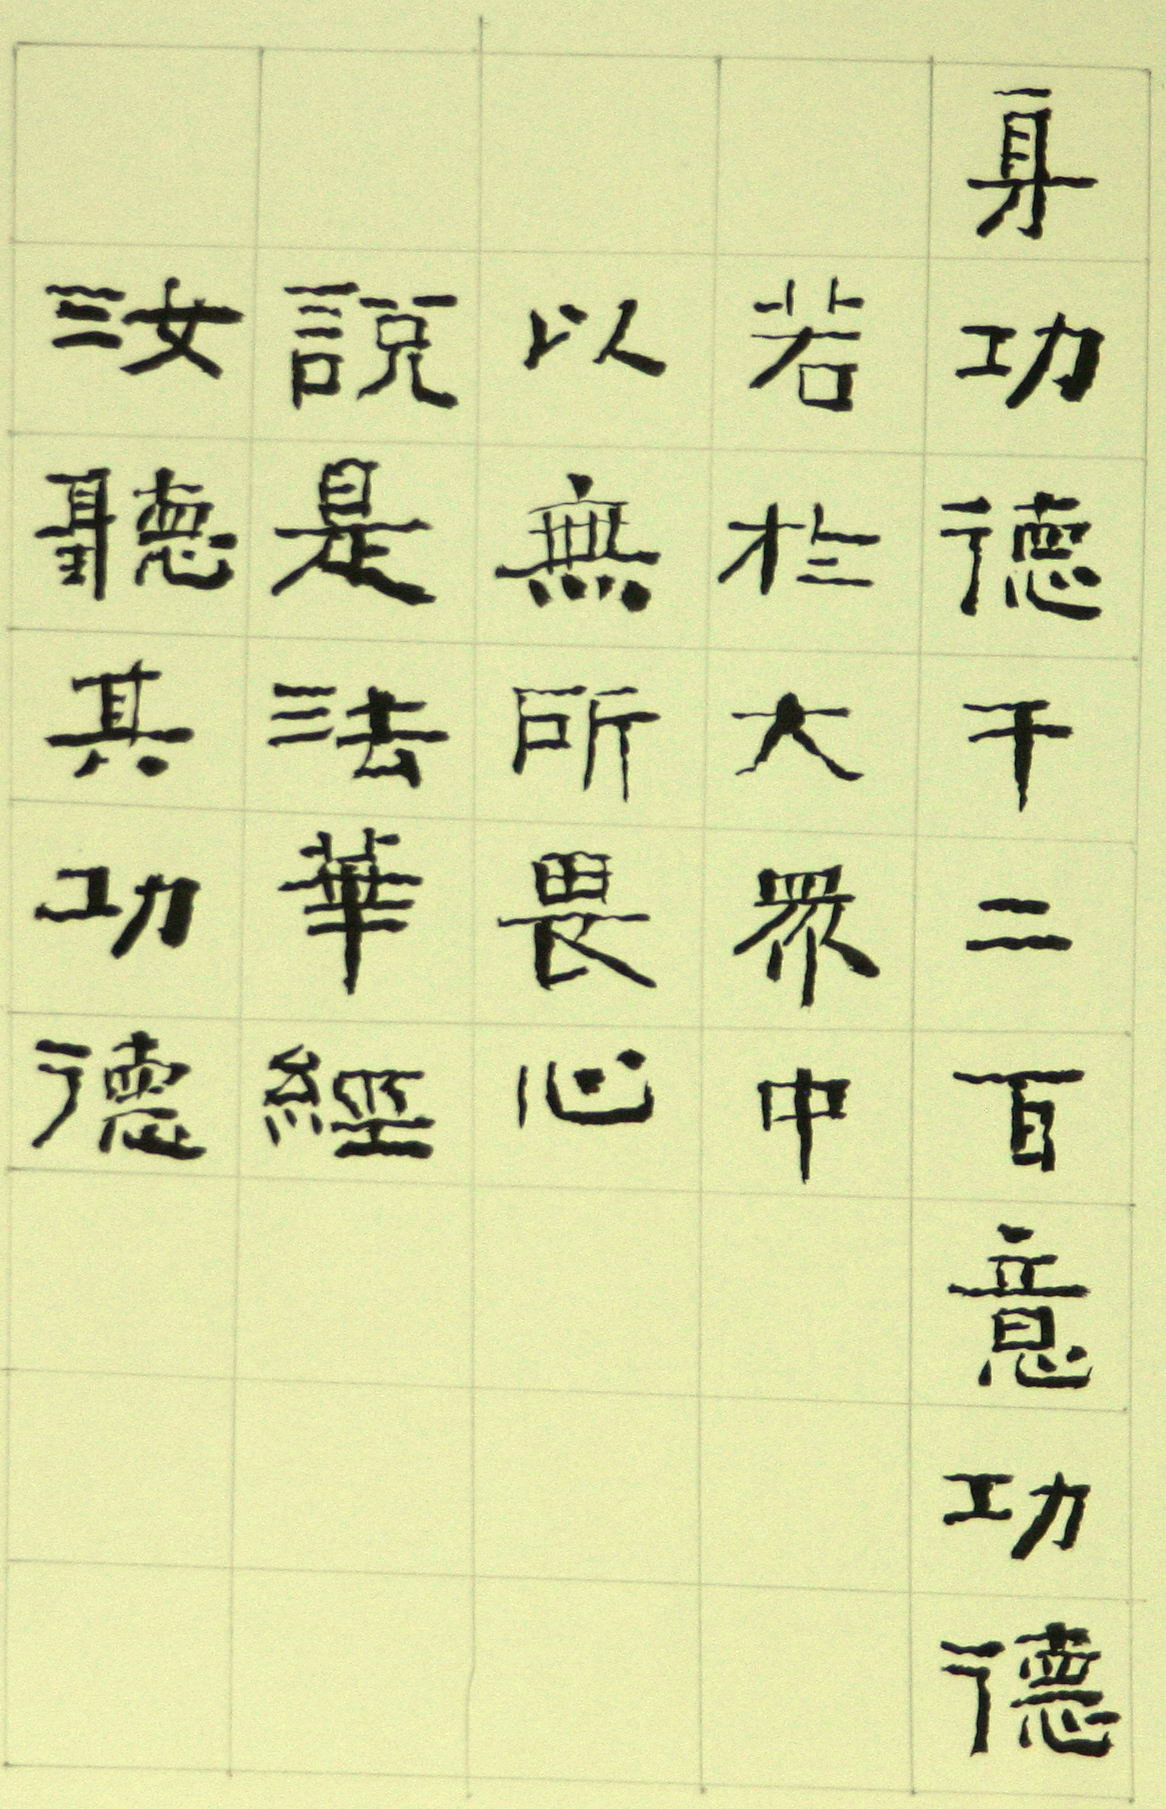 身功德千二百意功德
若於大眾中
以無所畏心
說是法華經
汝聽其功德